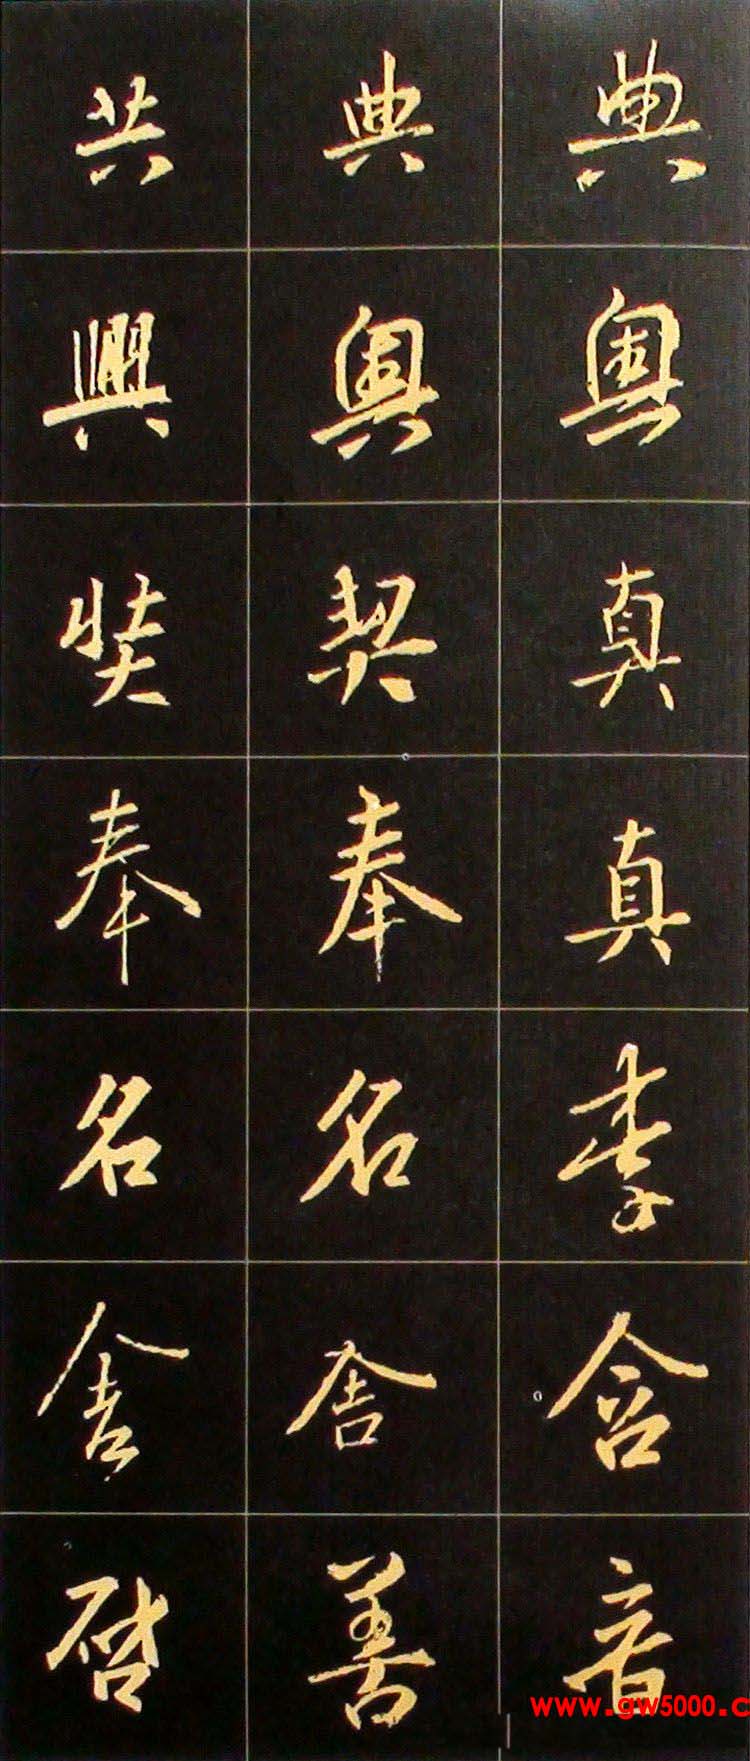 典奥真真李含音
典奥契奉名舍善
共興奘奉名舍啓
www.gw5000.c